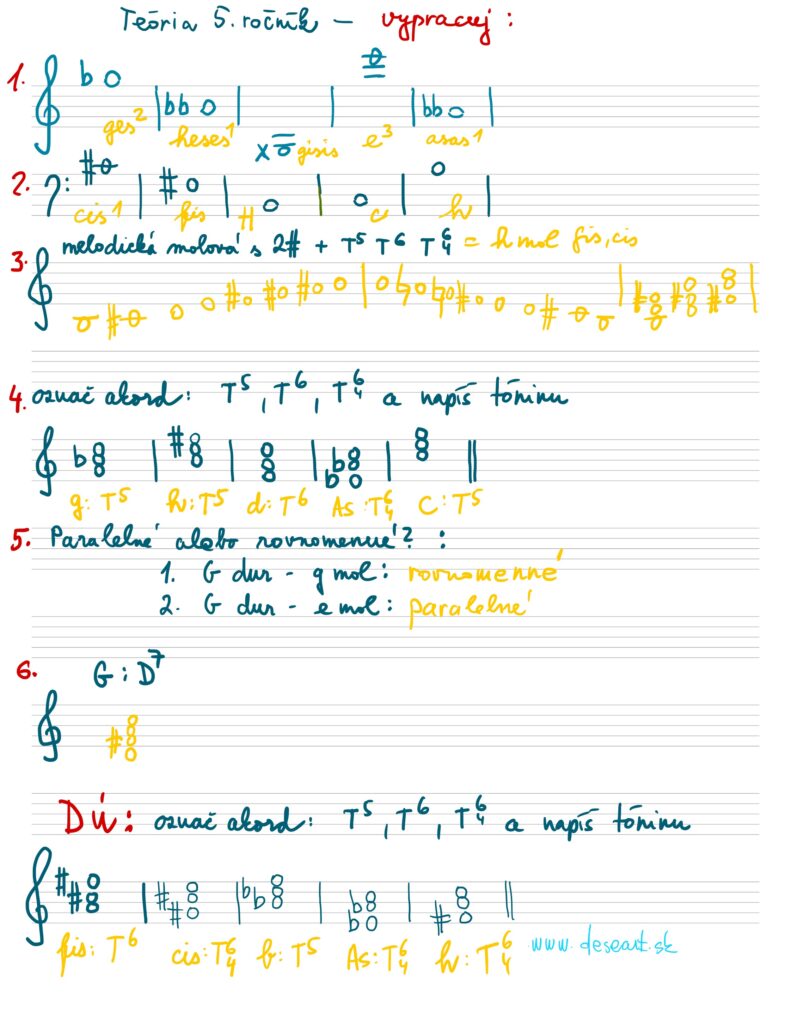 Teória 5. ročník – vypracuj :
1.
ges² heses¹ gisis e³ asas¹
2.
cis¹ fis H c h
melodická molová s 2# + T⁵ T⁶ T⁶₄ = h mol fis, cis
3.
4. označ akord: T⁵, T⁶, T⁶₄ a napíš tóninu
g: T⁵ h: T⁵ d: T⁶ As: T⁶₄ C: T⁵
5. Paralelné alebo rovnomenné? :
1. G dur - g mol: rovnomenné
2. G dur - e mol: paralelné
6. G: D⁷
DÚ: označ akord: T⁵, T⁶, T⁶₄ a napíš tóninu
fis: T⁶ cis: T⁶₄ b: T⁵ As: T⁶₄ h: T⁶₄
www.deseart.sk